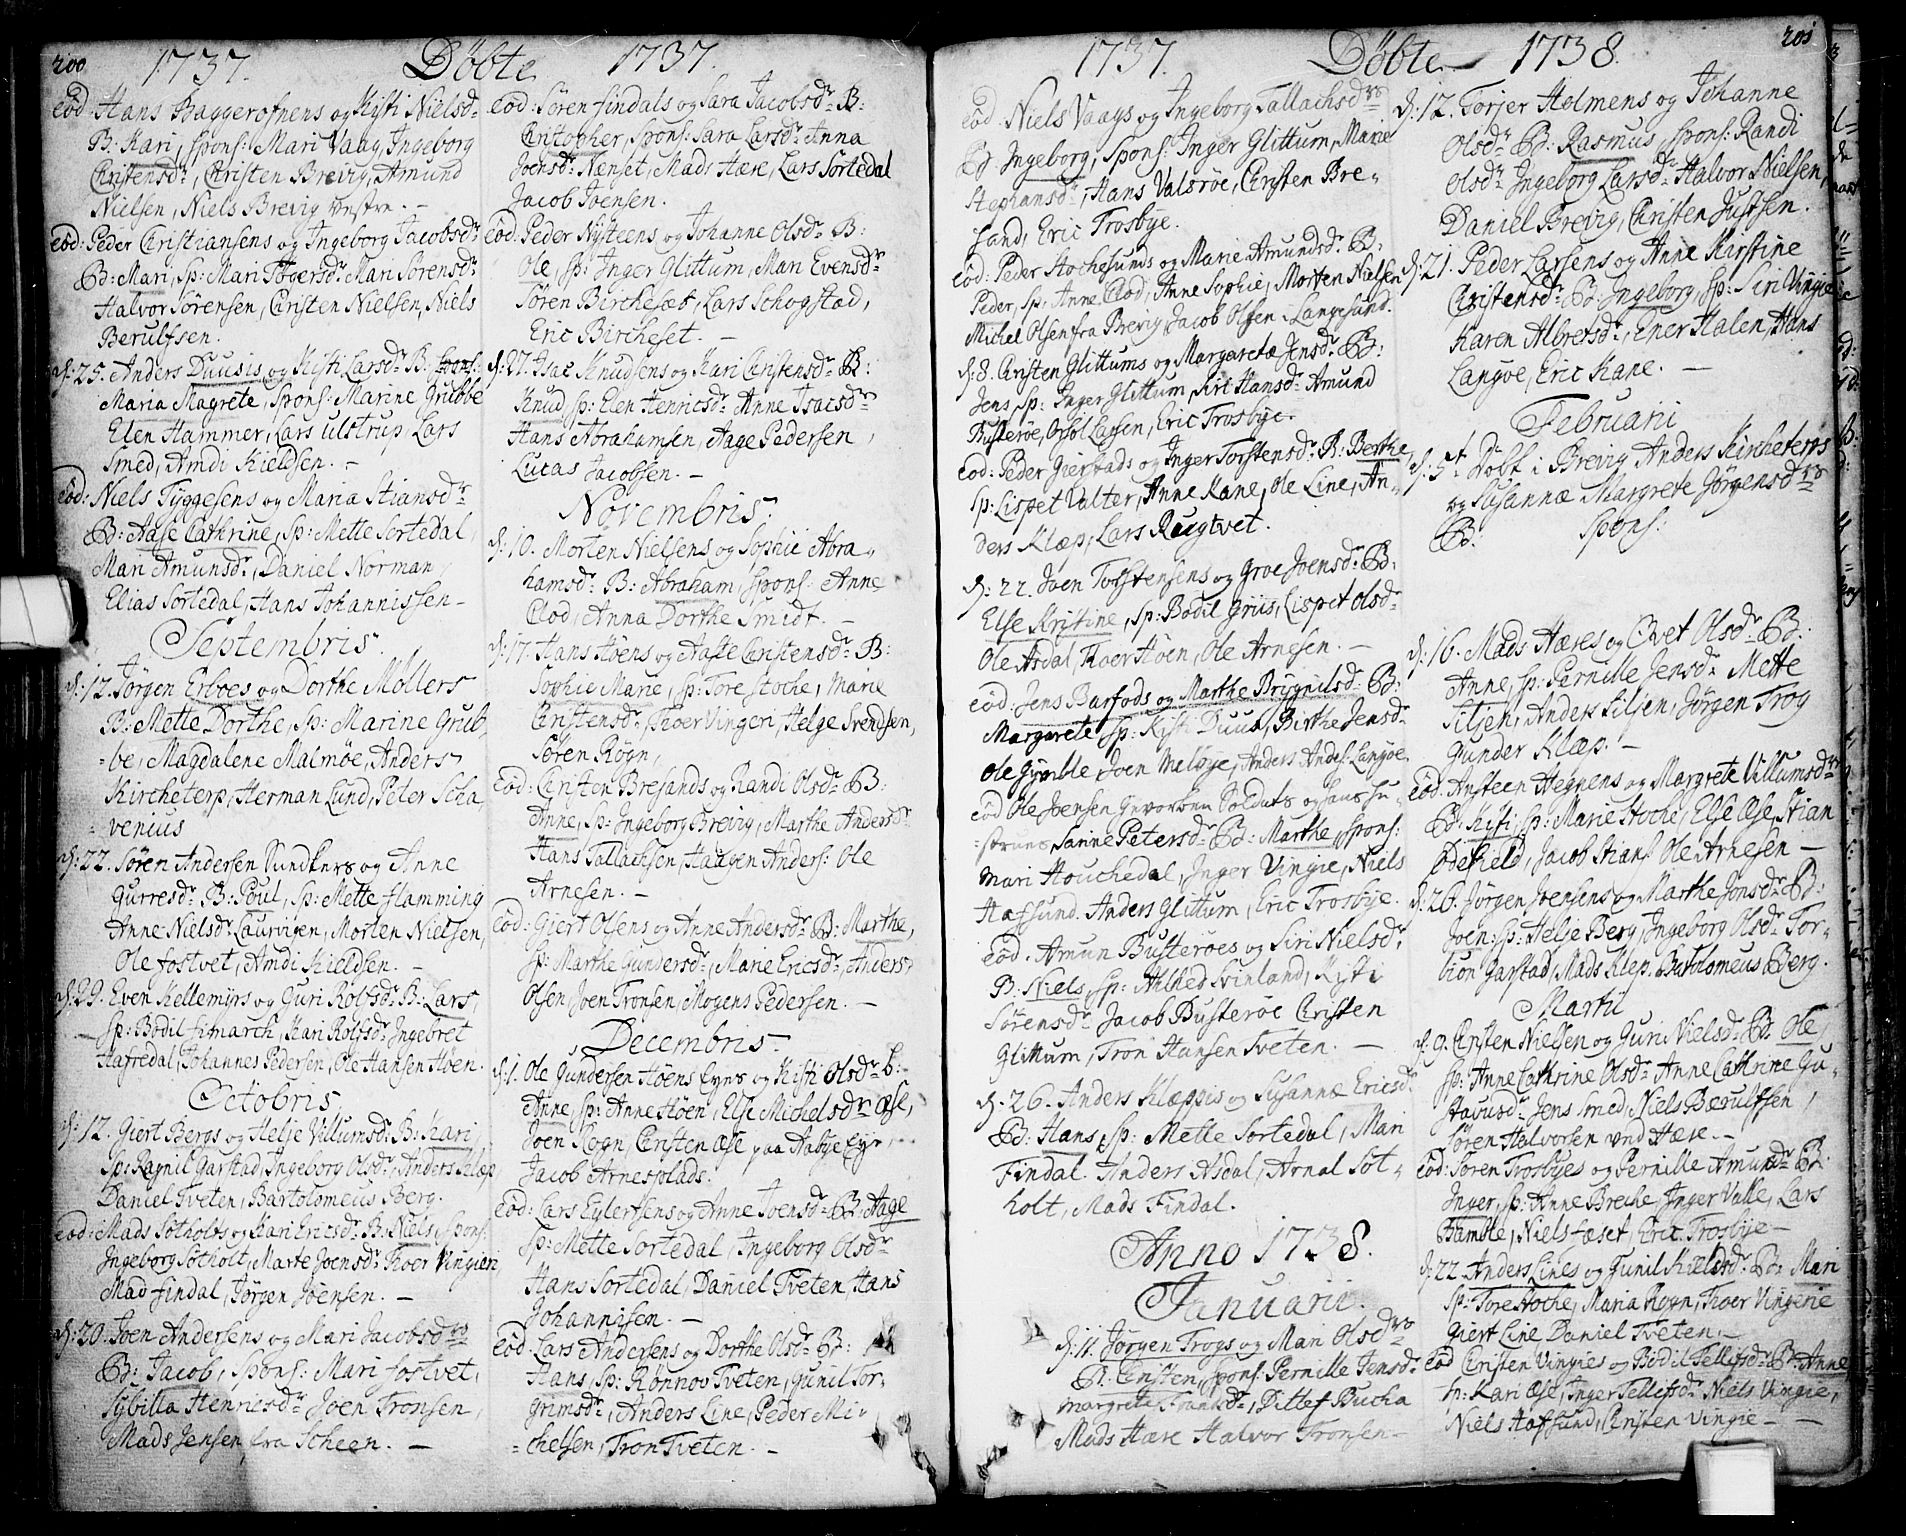 200 1737. Döbte 1737.
eod: Hans Baggerofnens og Kisti Nielsd:
B: Kari, Spons: Mari Vaag, Ingeborg
Christensdr, Christen Brevig, Amund
Nielsen, Niels Brevig vestre. -
eod: Peder Christiansens og Ingeborg Jacobsdr
B: Mari, Sp: Mari Togersdr Mari Sørensdr
Halvor Sørensen, Christen Nielsen, Niels
Berulfsen.
d: 25. Anders Duusis og Kisti Larsdr B: Spons:
Maria Magrete, Spons: Marine Grubbe
Elen Hammer, Lars Ulstrup, Lars
Smed, Amdi Kieldsen. -
eod: Niels Tyggesens og Maria Stiansdr
B: Aase Cathrine, Sp: Mette Sortedal,
Mari Amunsdr, Daniel Norman,
Elias Sortedal, Hans Johannissen -
Septembris.
d: 12. Jørgen Erboes og Dorthe Møllers
B: Mette Dorthe, Sp: Marine Grub,
=be, Magdalene Malmöe, Anders
Kircheterp, Herman Lund, Peter Scha
=venius
d: 22. Søren Andersen Sundkers og Anne
Gurresdr B: Poul, Sp: Mette Flamming
Anne Nielsdr Laurvigen, Morten Nielsen,
Ole Fostvet, Amdi Kieldsen. -
d: 29. Even Kellemyrs og Guri Rolfsdr B: Lars,
Sp: Bodil Fimarch, Kari Rolfsdr Ingebret
Hafredal, Johannes Pedersen, Ole Hansen Höen.
Octobris
d: 12. Giert Bergs og Helje Villumsdr B: Kari,
Sp: Ragnil Garstad, Ingeborg Olsdr, Anders Klæp
Daniel Tveten, Bartolomeus Berg.
eod: Mads Sotholts og Kari Ericsdr B: Niels, Spons:
Ingeborg Sotholt, Marte Joensdr Thoer Vingieri
Mad Findal, Jørgen Joensen. -
d: 20. Joen Andersens og Mari Jacobsdrs
B: Jacob, Spons: Mari Fostvet,
Sybilla Henricsdr Joen Tronsen,
Mads Jensen fra Scheen. -
eod: Søren Findals og Sara Jacobsdr B:
Christopher, Spons: Sara Larsdr Anna
Joensdr Nænset, Mads Hære, Lars Sortedal
Jacob Joensen.
eod: Peder Nysteens og Johanne Olsdr B:
Ole, Sp: Inger Glittum, Mari Evensdr
Søren Birchesæt, Lars Schogstad,
Eric Bircheset. -
d: 27. Isac Knudsens og Kari Christensdr B:
Knud, Sp: Elen Henricsdr Anne Isacsdr
Hans Abrahamsen, Aage Pedersen,
Lucas Jacobsen. -
Novembris.
d: 10. Morten Nielsens og Sophie Abra,
hamsdr B: Abraham, Spons. Anne
Clod, Anna Dorthe Smidt. -
d: 17. Hans Höens og Aaste Christensdr B:
Sophie Marie, Sp: Tore Stoche, Marie
Christensdr, Thoer Vingeri, Helge Svendsen,
Søren Rögn,
eod: Christen Bresands og Randi Olsdr B:
Anne, Sp: Ingeborg Brevig, Marthe Andersdr
Hans Tallachsen, Haagen Anders: Ole
Arnesen. -
eod: Giert Olsens og Anne Andersdr B: Marthe,
Sp: Marthe Gundersdr, Marie Ericsdr, Anders
Olsen, Joen Tronsen, Mogens Pedersen. -
Decembris.
d: 1. Ole Gundersen Höens Eyes og Kisti Olsdr B:
Anne, Sp: Anne Höen, Else Michelsdr Öse,
Joen Rogn, Christen Öse paa Aabye Eye,
Jacob Arnesplads.
eod: Lars Eylertsens og Anne Joensdr B: Aage
Sp: Mette Sortedal, Ingeborg Olsdr
Hans Sortedal, Daniel Tveten, Hans
Johannisen. -
eod. Lars Andersens og Dorthe Olsdr B:
Hans, Sp: Rönnov Tveten, Gunil Tor,
grimsdr, Anders Line, Peder Mi,
=chelsen, Tron Tveten. -
1737. Döbte 1738. 201
eod. Niels Vaags og Ingeborg Tallachsdrs
B: Ingeborg, Spons: Inger Glittum, Marie
Stephansdr, Hans Valsröe, Christen Bre,
sand, Eric Trosbye.
eod: Peder Stochesunds og Marie Amundsdr B:
Peder, Sp: Anne Clod, Anne Sophie, Morten Nielsen
Michel Olsen fra Brevig, Jacob Olsen Langesund.
d: 8. Christen Glittums og Margaretæ Jensdr B:
Jens, Sp: Inger Glittum, Siri Hansdr Amund
Busteröe, Orsol Larsen, Eric Trosbye.
eod: Peder Gierstads og Inger Torstensdr B: Berthe
Sp: Lispet Valter, Anne Kane, Ole Line, An,
ders Klæp, Lars Rugtvet.
d: 22. Joen Torstensens og Groe Joensdr B:
Else Kristine, Sp: Bodil Griis, Lispet Olsdr
Ole Asdal, Thoer Höen, Ole Arnesen. -
eod: Jens Barfods og Marthe Brignilsd: B:
Margarete Sp: Kisti Duus, Birthe Jensdr
Ole Gymble, Joen Melbye, Anders Andes: Langöe.
eod Ole Joensen Gevorben Soldats og hans Hu,
=struis Sanne Petersdr B: Marthe, Spons:
Mari Houchedal, Inger Vingie, Niels
Hafsund. Anders Glittum, Eric Trosbye.
eod. Amun Busteröes og Siri Nielsdr
B: Niels, Sp: Ahlhed Svinland, Kisti
Sørensdr Jacob Busteröe Christen
Glittum, Tron Hansen Tveten. -
d: 26. Anders Klæpsis og Susannæ Ericsdr
B: Hans, Sp: Mette Sortedal, Mari
Findal. Anders Asdal, Arnal Sot,
holt, Mads Findal.
Anno 1738.
Januarii.
d: 11. Jørgen Trogs og Mari Olsdrs
B: Christen, Spons: Pernille Jensdr
Margrete Fransdr, Ditlef Bucha
Mads Hære Halvor Tronsen -
d: 12. Torjer Holmens og Johanne
Olsdr B: Rasmus, Spons: Randi
Olsdr Ingeborg Larsdr Halvor Nielsen,
Daniel Brevig, Christen Justsen.
d: 21. Peder Larsens og Anne Kirstine
Christensdr B: Ingeborg, Sp: Siri Vingie
Karen Albretsdr, Ener Halen, Hans
Langöe, Eric Kane. -
Februarii
d: 5t Döbt i Brevig Anders Kircheterps
og Susannæ Margrete Jørgensdrs
B: Spons:
d: 16. Mads Hæres og Chet Olsdr B:
Anne, Sp: Pernille Jensdr Mette
Siljen, Anders Siljen, Jørgen Trog
Gunder Klæp. -
eod. Ansteen Hegnens og Margrete Villumsdrs
B: Kisti, Sp: Marie Stoche, Else Öse, Stian
Ödekield, Jacob Stians: Ole Arnesen -
d: 26. Jørgen Joensens og Marthe Jonsdr B:
Joen: Sp: Helje Berg, Ingeborg Olsdr Tor,
biön Garstad, Mads Klep, Bartolomeus Berg.
Martii
d: 9. Christen Nielsen og Guri Nielsdr B: Ole,
Sp: Anne Cathrine Olsdr Anne Cathrine Gu,
stavusdr Jens Smed, Niels Berulfsen,
Søren Halvorsen vnd Hære. -
eod: Søren Trosbyes og Pernille Amundsdr B:
Inger, Sp: Anne Breche, Inger Valle, Lars
Bamble, Niels Fæset, Eric Trosbye -
d: 22. Anders Lines og Gunil Kieldsdr B: Mari
Sp: Tore Stoche, Maria Rogn, Thoer Vingerie
Giert Line Daniel Tveten, -
eod Christen Vingies og Bodil Tellefsdr B: Anne
Sp: Kari Öse, Inger Tellefsdr Niels Vingie,
Niels Hafsund, Christen Vingie - -